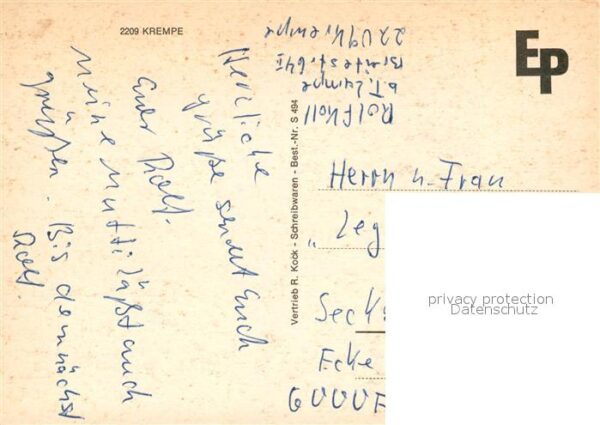 2209 KREMPE
EP
Herzliche
grüße sendet Euch
Euer Rolf.
Meine Mutti läßt auch
grüßen. Bis demnächst
Rolf.
Rolf Koll
b. T. Lampe
Breitestr. 64 I
2209 Krempe
Vertrieb R. Kock - Schreibwaren - Best.-Nr. S 494
Herrn u. Frau
" Zeg
Seck
Ecke
6000 F
privacy protection
Datenschutz